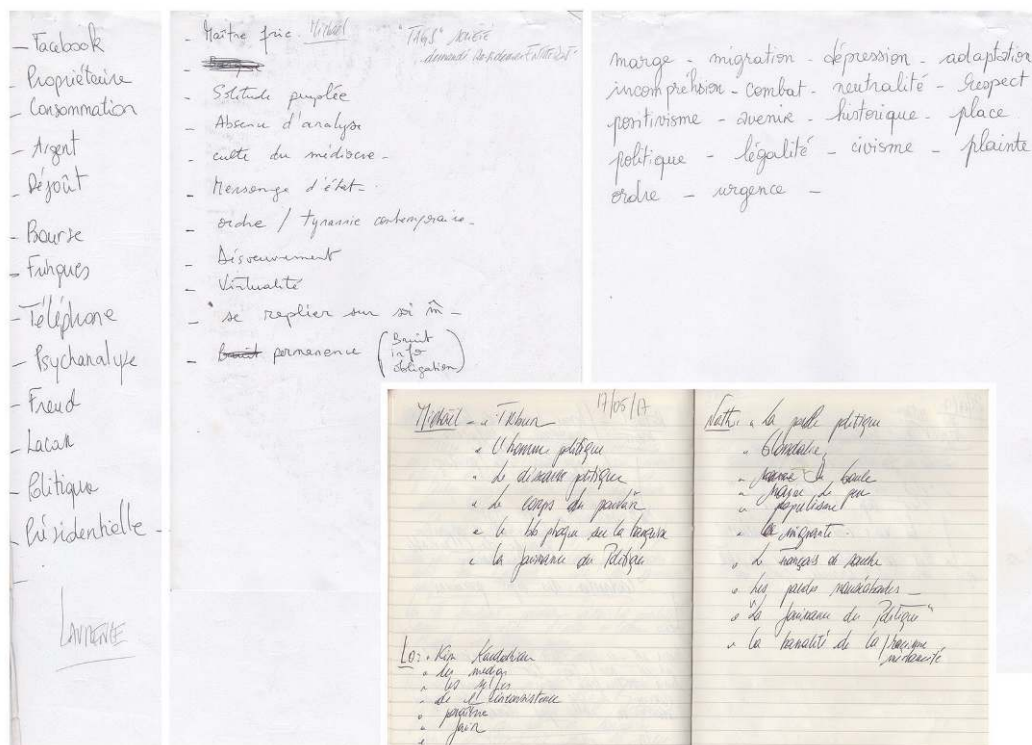 - Facebook
- Propriétaire
- Consommation
- Argent
- Dégoût
- Bourse
- Fringues
- Téléphone
- Psychanalyse
- Freud
- Lacan
- Politique
- Présidentielle -
LAURENCE
- Maître fric. Michaël
"TAGS" société
demandé
- Solitude peuplée
- Absence d'analyse
- culte du médiocre -
- Mensonge d'état -
- ordre / tyrannie contemporaine -
- Désoeuvrement
- Virtualité
- se replier sur soi m̂ -
- Bruit permanence (Bruit
info
obligation)
marge - migration - dépression - adaptation
incompréhsion - combat - neutralité - respect
positivisme - avenir - historique - place
politique - légalité - civisme - plainte
ordre - urgence -
17/05/17
Michaël - Tribun
L'homme politique
Le discours politique
Le corps du pantin
le bb phoque sur la banquise
la jouissance du Politique
Lo: Kim Kardashian
les médias
les selfies
de l'inconsistance
paraître
Nath: La parole politique
populisme
migrante
Le français de souche
Les paroles nauséabondes -
"La jouissance du Politique"
la banalité de la